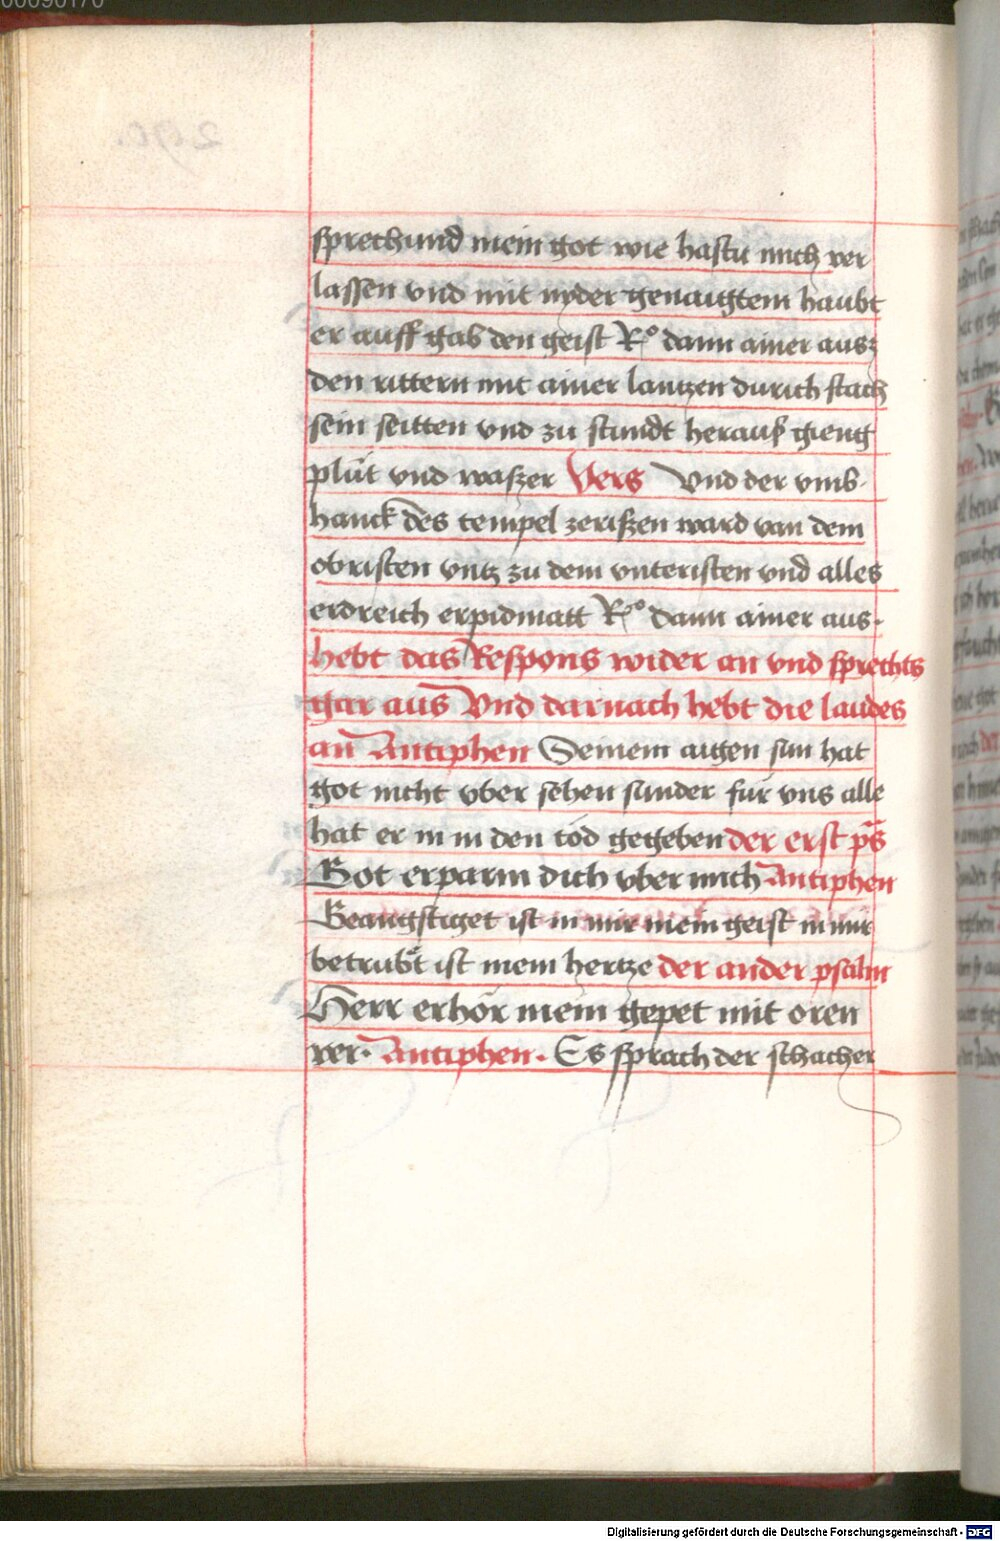 00090170
sprechund mein got wie hastu mich ver
lassen vnd mit nyder genaigtem haubt
er auff gab den geist R° dann ainer ausz
den rittern mit ainer lantzen durich stach
sein seitten vnd zu stundt herauß gieng
plůt vnd waszer Vers Vnd der vmb
hanck des tempel zeriszen ward van dem
obristen vntz zu dem vnteristen vnd alles
erdreich erpidmatt R° dann ainer aus.
hebt das Respons wider an vnd sprechts
gar aus Vnd darnach hebt die laudes
an Antiphen Seinem aigen sun hat
got nicht vber sehen sunder für vns alle
hat er in in den tod gegeben der erst ps̄
Got erparm dich vber mich Antiphen
Beangstiget ist in mir mein geist in mir
betrůbt ist mein hertze der ander psalm
Herr erhör mein gepet mit oren
ver. Antiphen. Es sprach der schacher
Digitalisierung gefördert durch die Deutsche Forschungsgemeinschaft - DFG